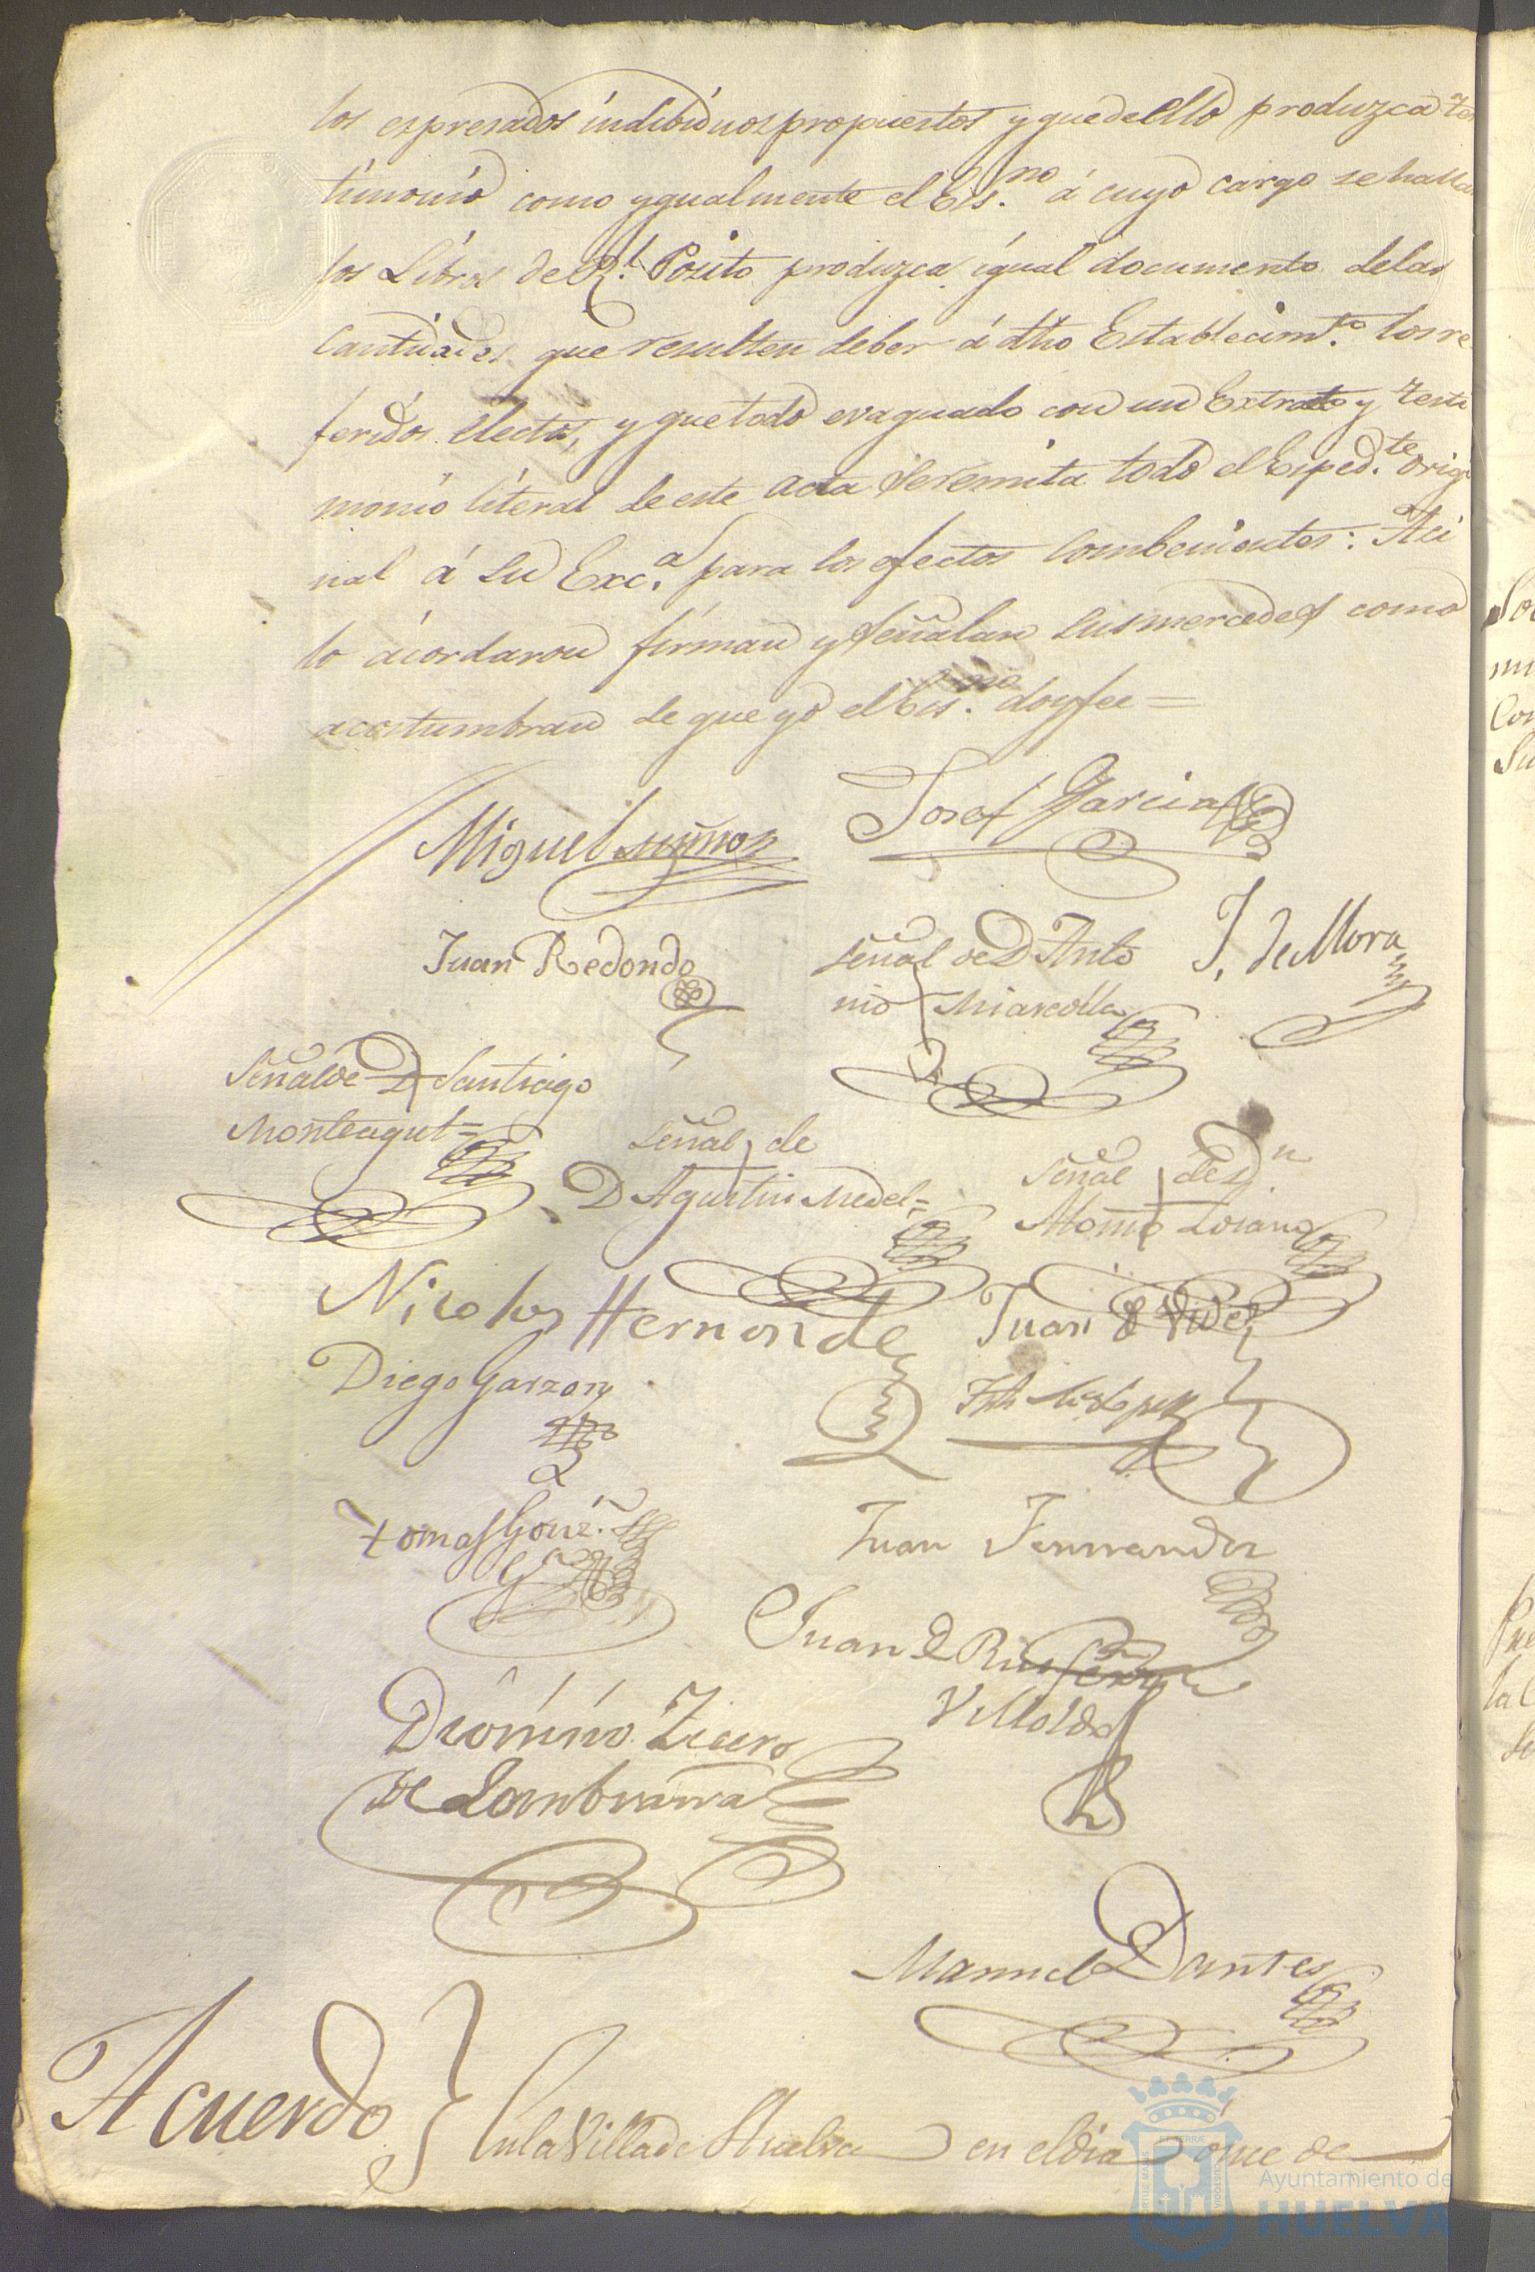 los espresados indibiduos propuestos y que de ello produzca tes
timonio como ygualmente el Es.no á cuyo cargo se halla
los Libros de R.l Posito produzca igual documento de las
Cantidades que resulten deber á dho Establecim.to los re
feridos electos, y que todo evaquado con un Extrato y testi
monio literal de este acta se remita todo el Esped.te origi
nal á Su Exc.a para los efectos combenientes: Asi
lo acordaron firman y señalan sus mercedes como
acostumbran de que yo el Es.no doy fee =
Miguel Muñoz
Josef Garcia
Juan Redondo
Señal de D Anto
nio Miarcolla
J. de Mora
Señal de D Santiago
Monteagut =
Señal de
D Agustin Medel =
Señal de D.n
Alonso Losano
Nicolas Hernande
Juan de Videz
Diego Garzon
Tomas Gonz.
Juan Fernandez
Juan de
Villoldo
Dionisio Ticero
de Lambarria
Manuel Dantes
Acuerdo
En la Villa de Huelva en el dia onse de
Ayuntamiento de
HUELVA